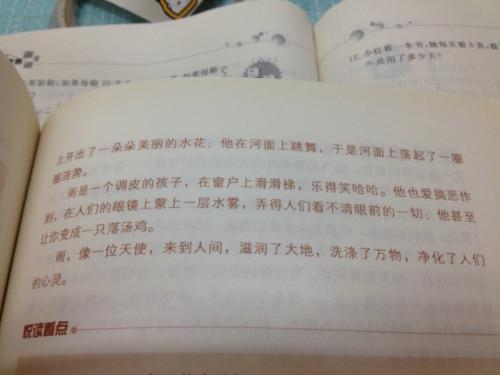 12.小红看一本书,她每天看8页,看
一共用了多少天?
上开出了一朵朵美丽的水花;他在河面上跳舞,于是河面上荡起了一圈
圈涟漪。
雨是一个调皮的孩子,在窗户上滑滑梯,乐得笑哈哈。他也爱搞恶作
剧,在人们的眼镜上蒙上一层水雾,弄得人们看不清眼前的一切;他甚至
让你变成一只落汤鸡。
雨,像一位天使,来到人间,滋润了大地,洗涤了万物,净化了人们
的心灵。
悦读看点